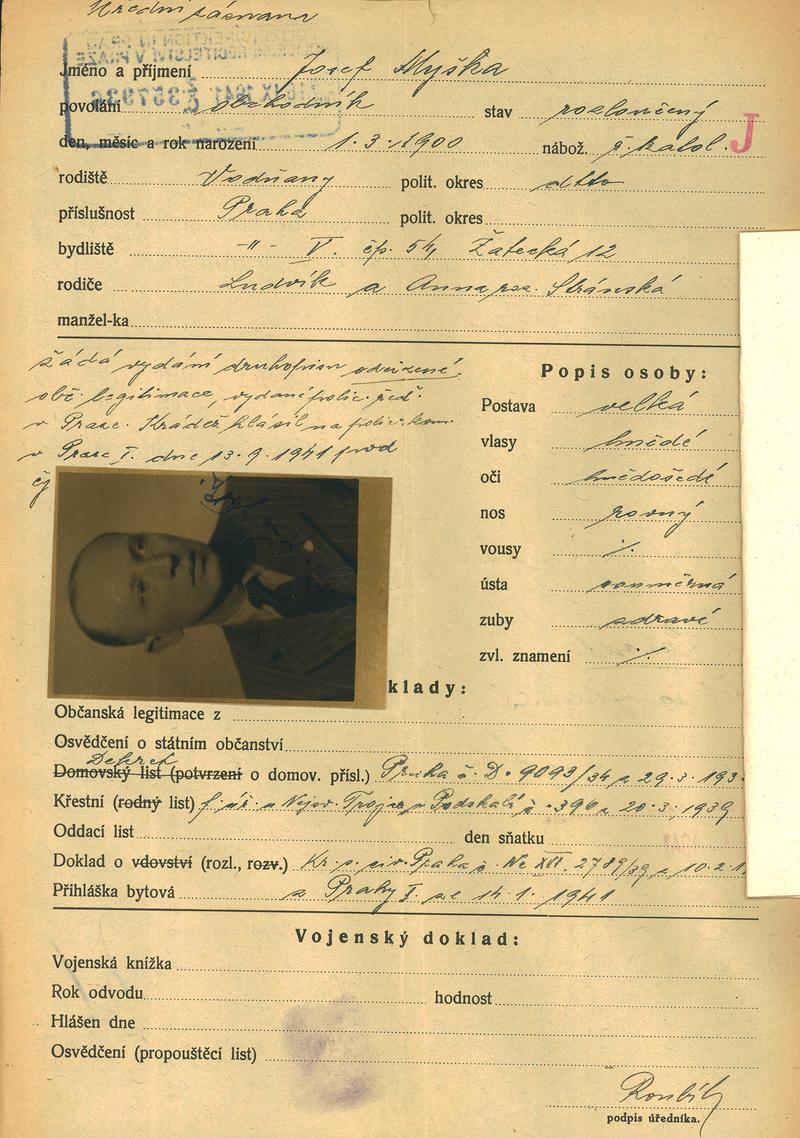 Úřední záznam
Jméno a příjmení Josef Myška
povolání obchodník stav rozloučený
den, měsíc a rok narození 1. 3. 1900 nábož. ř. katol. J
rodiště Vodňany polit. okres dtto
příslušnost Praha polit. okres
bydliště -"- V. čp. 54, Žatecká 12
rodiče Ludvík a Anna roz. Stránská
manžel-ka
žádá vydání druhopisu odcizené
obč. legitimace, vydané polic. řed.
v Praze. Krádež hlásil na polic. kom.
v Praze I. dne 13. 9. 1941 pod
čj
Popis osoby:
Postava velká
vlasy hnědé
oči hnědošedé
nos rovný
vousy ./.
ústa souměrná
zuby zdravé
zvl. znamení ./.
klady:
Občanská legitimace z
Osvědčení o státním občanství
Dekret
Domovský list (potvrzení o domov. přísl.) Praha č. D. 9093/34 z 29. 3. 193
Křestní (rodný list) f. úř. u Nejsv. Trojice v Podskalí č. 396 z 20. 3. 1939
Oddací list den sňatku
Doklad o vdovství (rozl., rozv.) Kr. s. civ. Praha č. Nc XVI. 2789/39 z 10. 2. 1
Přihláška bytová z Prahy I. ze 14. 1. 1941
Vojenský doklad:
Vojenská knížka
Rok odvodu hodnost
Hlášen dne
Osvědčení (propouštěcí list)
podpis úředníka.